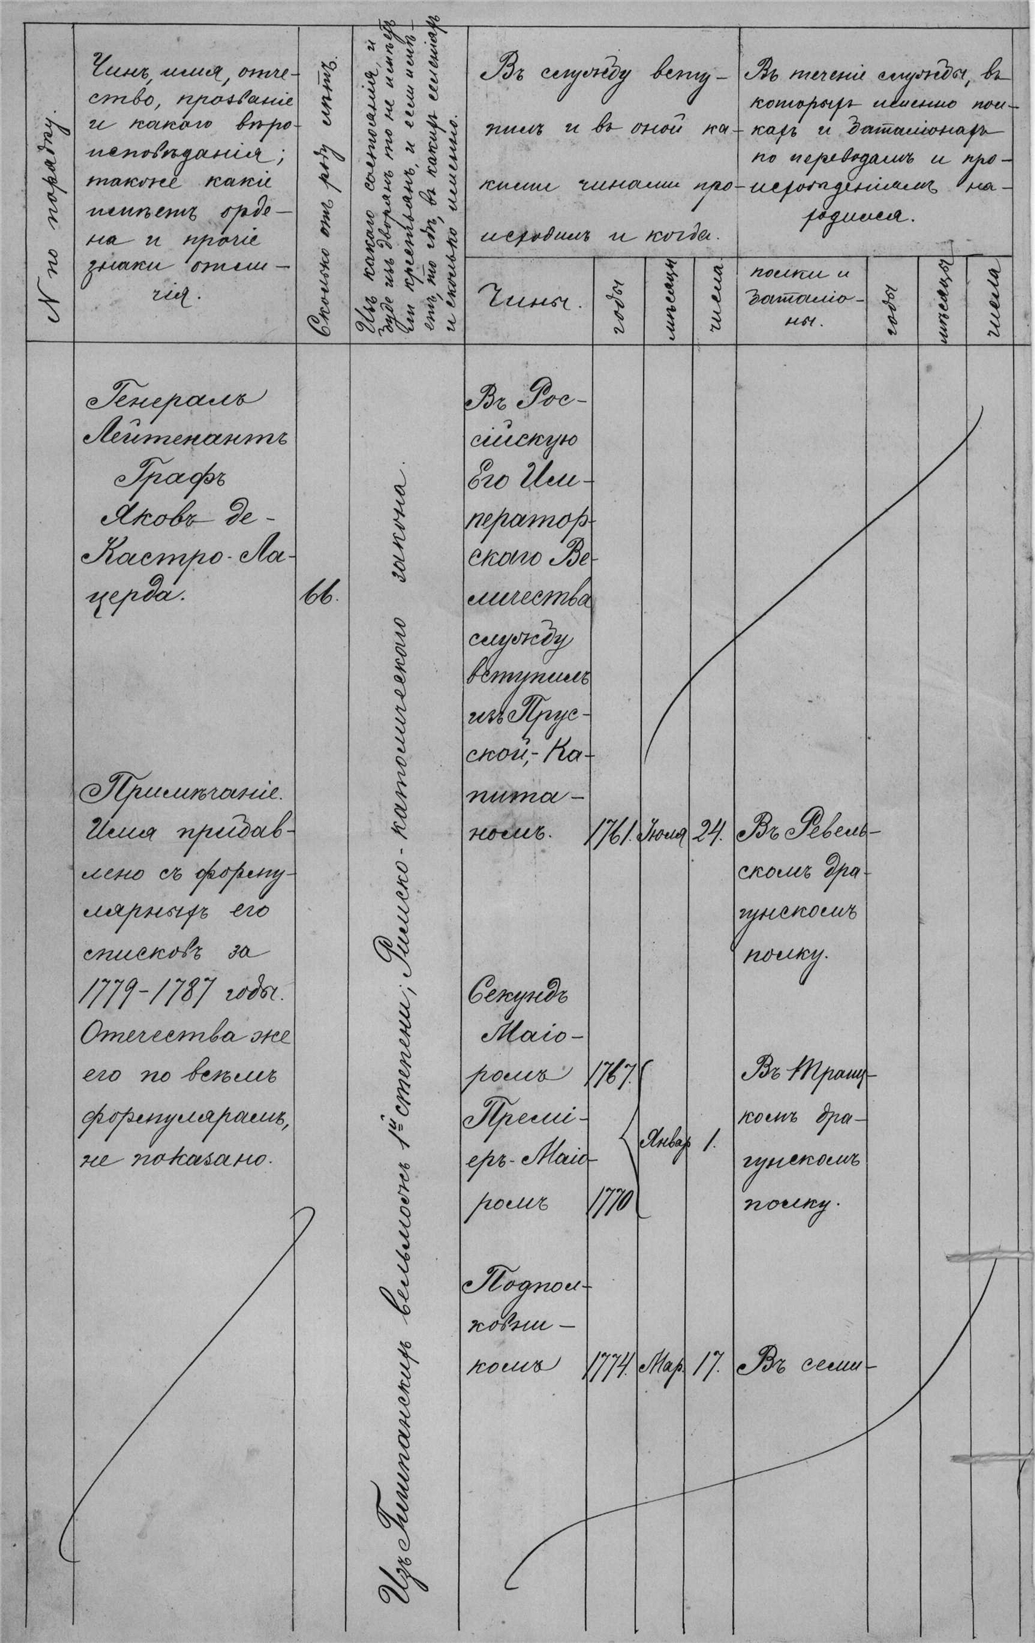 N по порядку.
Чинъ, имя, отче-
ство, прозваніе
и какого вѣро-
исповѣданія;
также какіе
имѣетъ орде-
на и прочіе
знаки отли-
чія.
Сколько отъ роду лѣтъ.
Изъ какого состоянія, и
буде изъ дворянъ, то не имѣетъ
ли крестьянъ, и если имѣ-
етъ, то гдѣ, въ какихъ селеніяхъ
и сколько именно.
Въ службу всту-
пилъ и въ оной ка-
кими чинами про-
исходилъ и когда.
Въ теченіе службы, въ
которыхъ именно пол-
кахъ и баталіонахъ
по переводамъ и про-
исхожденіямъ на-
ходился.
Чины.
годы
мѣсяцы
числа
полки и
баталіо-
ны.
годы
мѣсяцы
числа
Генералъ
Лейтенантъ
Графъ
Яковъ де-
Кастро-Ла-
церда.
66.
Примѣчаніе.
Имя прибав-
лено съ форму-
лярныхъ его
списковъ за
1779-1787 годы.
Отечества же
его по всѣмъ
формулярамъ,
не показано.
Изъ Гишпанскихъ вельможъ 1й степени; Римско-католическаго закона.
Въ Рос-
сійскую
Его Им-
ператор-
скаго Ве-
личества
службу
вступилъ
изъ Прус-
ской,- Ка-
пита-
номъ. 1761. Іюля 24. Въ Ревель-
скомъ дра-
гунскомъ
полку.
Секундъ
Маіо-
ромъ 1767.
Премі-
еръ-Маіо-
ромъ 1770
Январ 1.
комъ дра-
гунскомъ
полку.
Подпол-
ковни-
комъ 1774. Мар. 17. Въ семи-